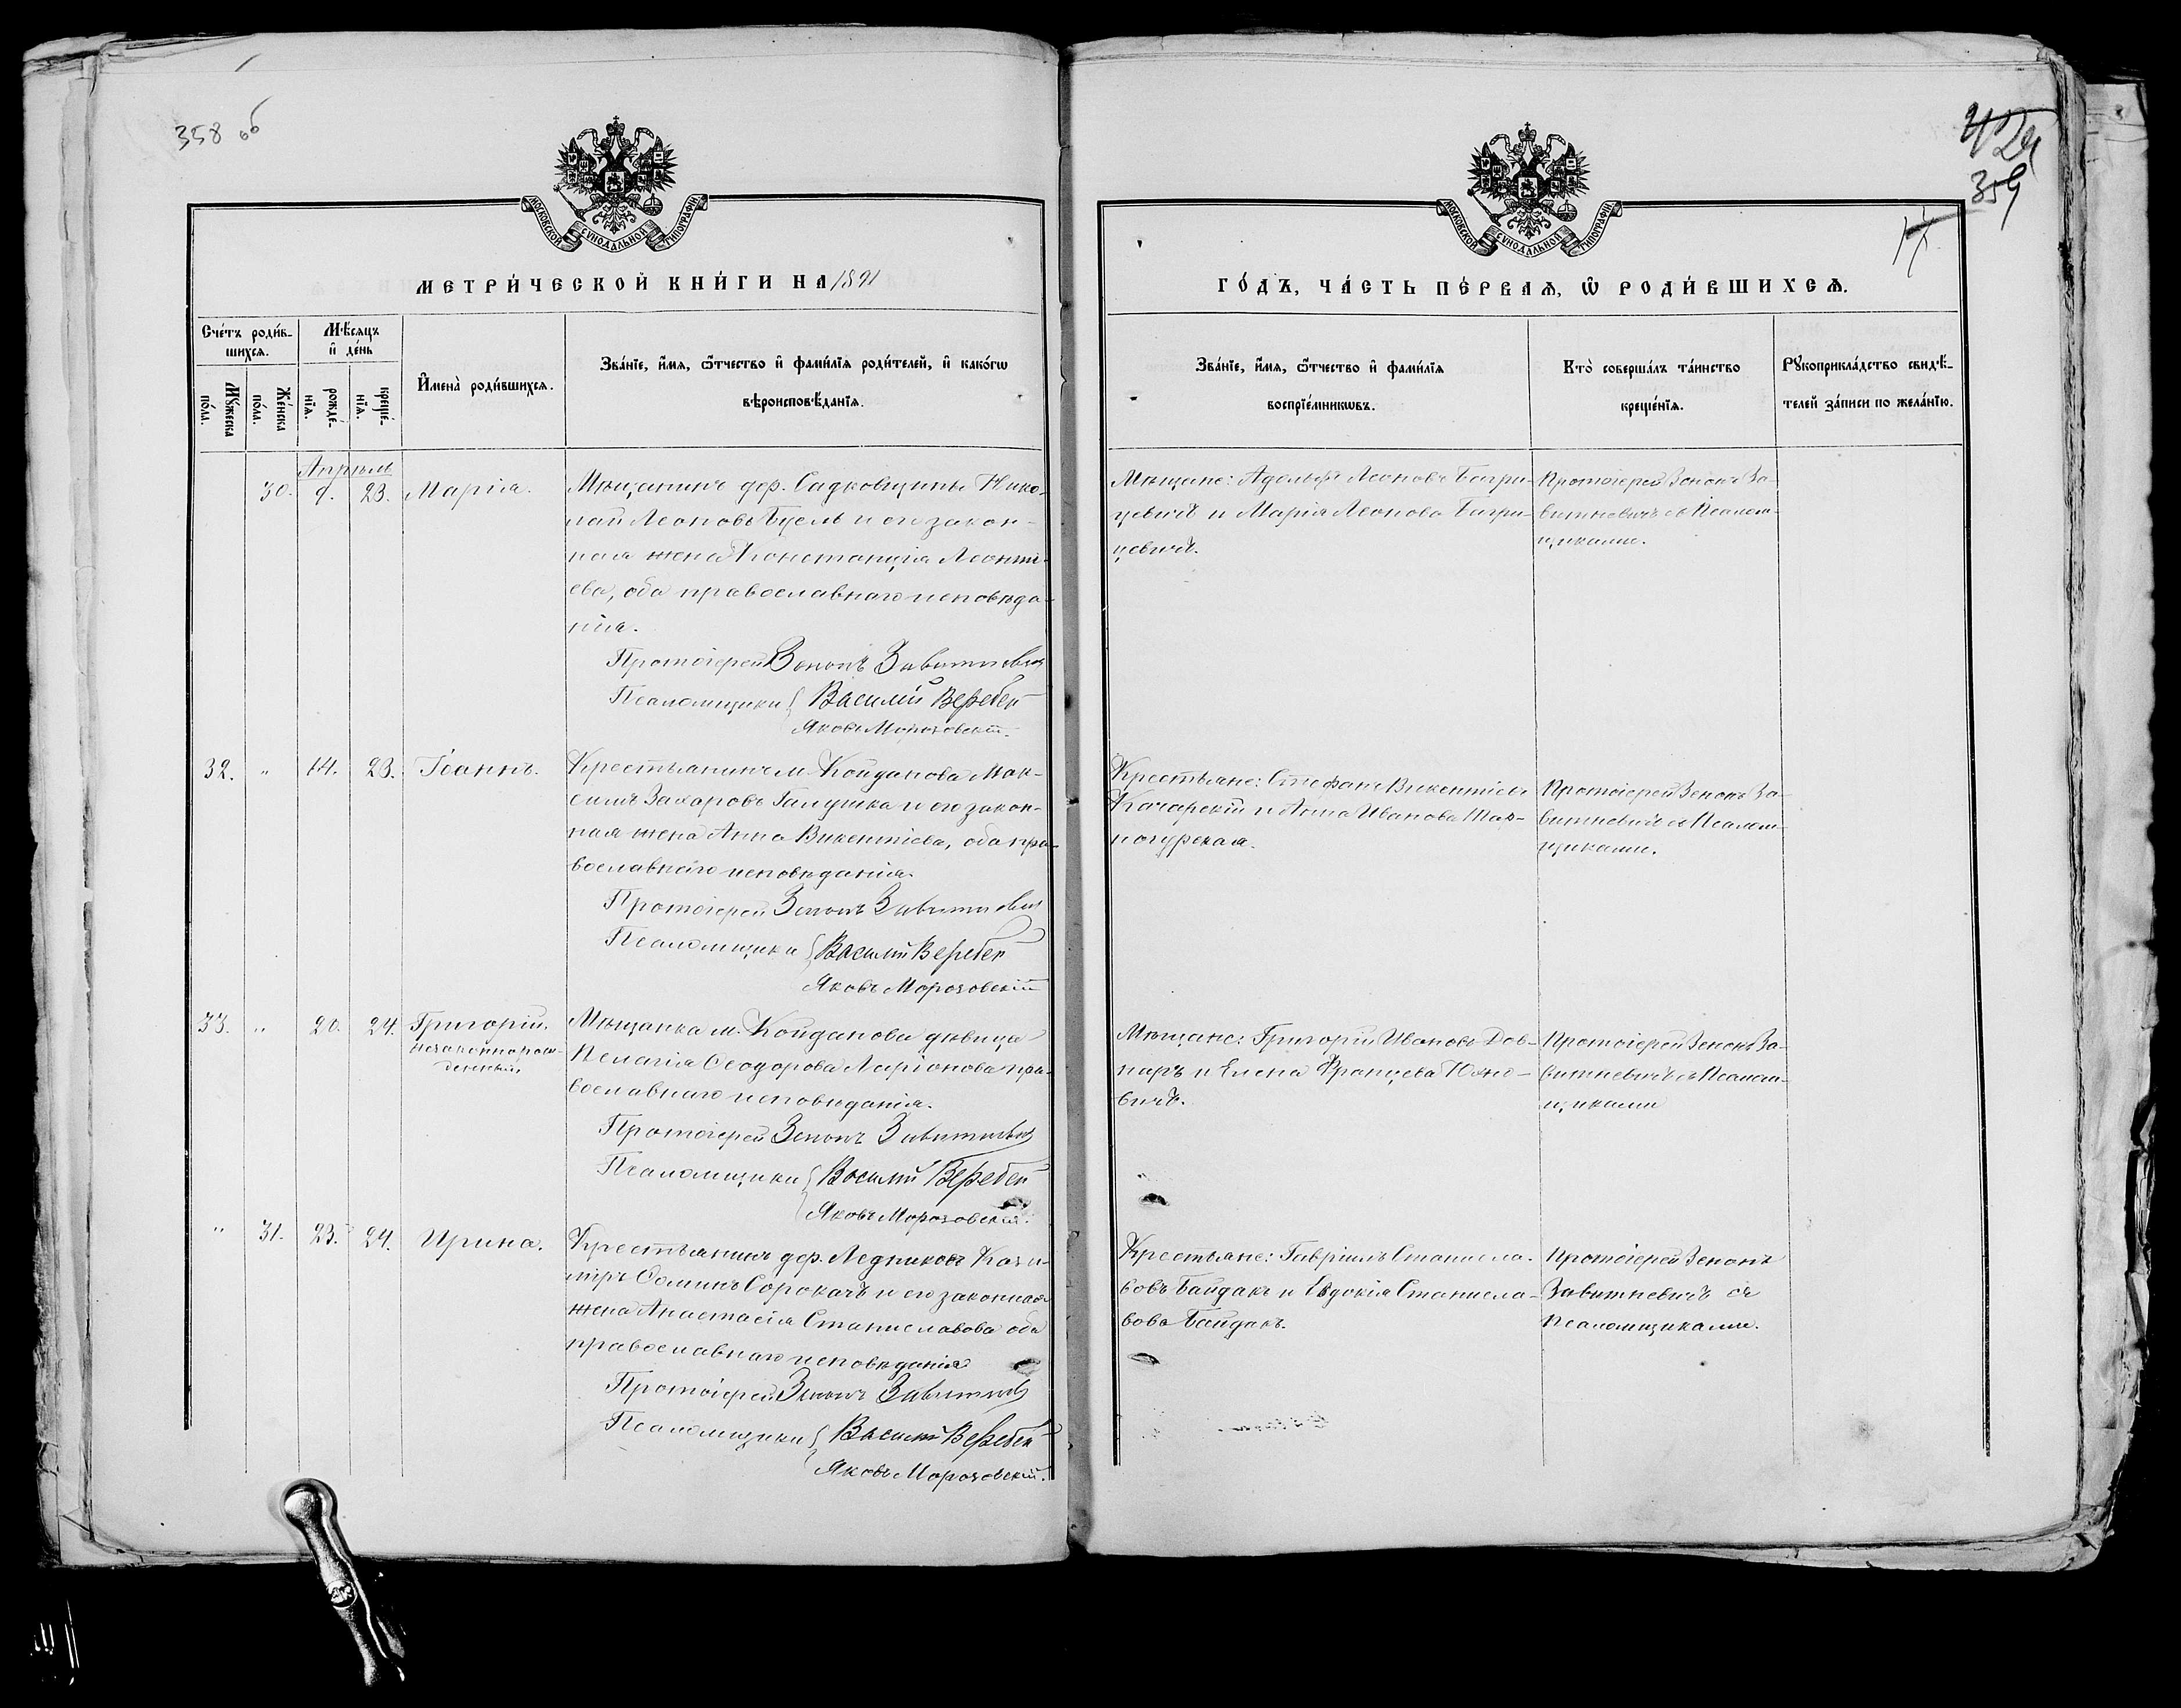 358 об
359
МОСКОВСКОЙ СѴНОДАЛЬНОЙ ТИПОГРАФІИ
МЕТРИ́ЧЕСКОЙ КНИ́ГИ НА 1891
Сче́тъ роди́в-
шихсѧ.
Мѣ́сѧцъ
и҆ де́нь
Мꙋ́жеска
по́ла.
Же́нска
по́ла.
рожде́-
нїѧ.
креще́-
нїѧ.
И҆мена̀ роди́вшихсѧ.
Зва́нїе, и҆́мѧ, ѻ҆́тчество и҆ фами́лїѧ роди́телей, и҆ како́гѡ
вѣроисповѣ́данїѧ.
Апрѣль
30. 9. 23. Марія.
Мѣщанинъ дер. Садковщины Нико-
лай Леоновъ Буель и его закон-
ная жена Констанція Леонть-
ева, оба православнаго исповѣда-
нія.
Протоіерей Зенонъ Завитневичъ
Псаломщики Василий Веребей
Яковъ Морозовскій.
32. " 14. 23. Іоаннъ.
Крестьянинъ м. Койданова Мак-
симъ Захаровъ Галушка и его закон-
ная жена Анна Викентіева, оба пра-
вославнаго исповѣданія.
Протоіерей Зенонъ Завитневичъ
Псаломщики Василий Веребей
Яковъ Морозовскій
33. " 20. 24. Григорій,
незаконнорож-
денный
Мѣщанка м. Койданова дѣвица
Пелагія Ѳеодорова Ларіонова пра-
вославнаго исповѣданія.
Протоіерей Зенонъ Завитневичъ
Псаломщики Василий Веребей
Яковъ Морозовскій.
" 31. 23. 24. Ирина.
Крестьянинъ дер. Ледниковъ Кази-
міръ Сорокачъ и его законная
жена Анастасія Станиславова оба
православнаго исповѣданія
Протоіерей Зенонъ Завитневичъ
Псаломщики Василий Веребей
Яковъ Морозовскій.
МОСКОВСКОЙ СѴНОДАЛЬНОЙ ТИПОГРАФІИ
ГО́ДЪ, ЧА́СТЬ ПЕ́РВАѦ, Ѡ҆ РОДИ́ВШИХСѦ.
Зва́нїе, и҆́мѧ, ѻ҆́тчество и҆ фами́лїѧ
воспрїе́мникѡвъ.
Кто̀ соверша́лъ та́инство
креще́нїѧ.
Рꙋкоприкла́дство свидѣ́-
телей за́писи по жела́нїю.
Мѣщане: Адольфъ Леоновъ Багри-
цевичъ и Марія Леонова Багри-
цевичъ.
Протоіерей Зенонъ За-
витневичъ съ Псалом-
щиками.
Крестьяне: Стефанъ Викентіевъ
Качарскій и Анна Иванова
Протоіерей Зенонъ За-
витневичъ съ Псалом-
щиками.
Мѣщане: Григорій Ивановъ Дов-
наръ и Елена Францева Юхно-
вичъ.
Протоіерей Зенонъ За-
витневичъ съ Псалом-
щиками
Крестьяне: Гавріилъ Станисла-
вовъ Байдакъ и Евдокія Станисла-
вова Байдакъ.
Протоіерей Зенонъ
Завитневичъ съ
Псаломщиками.